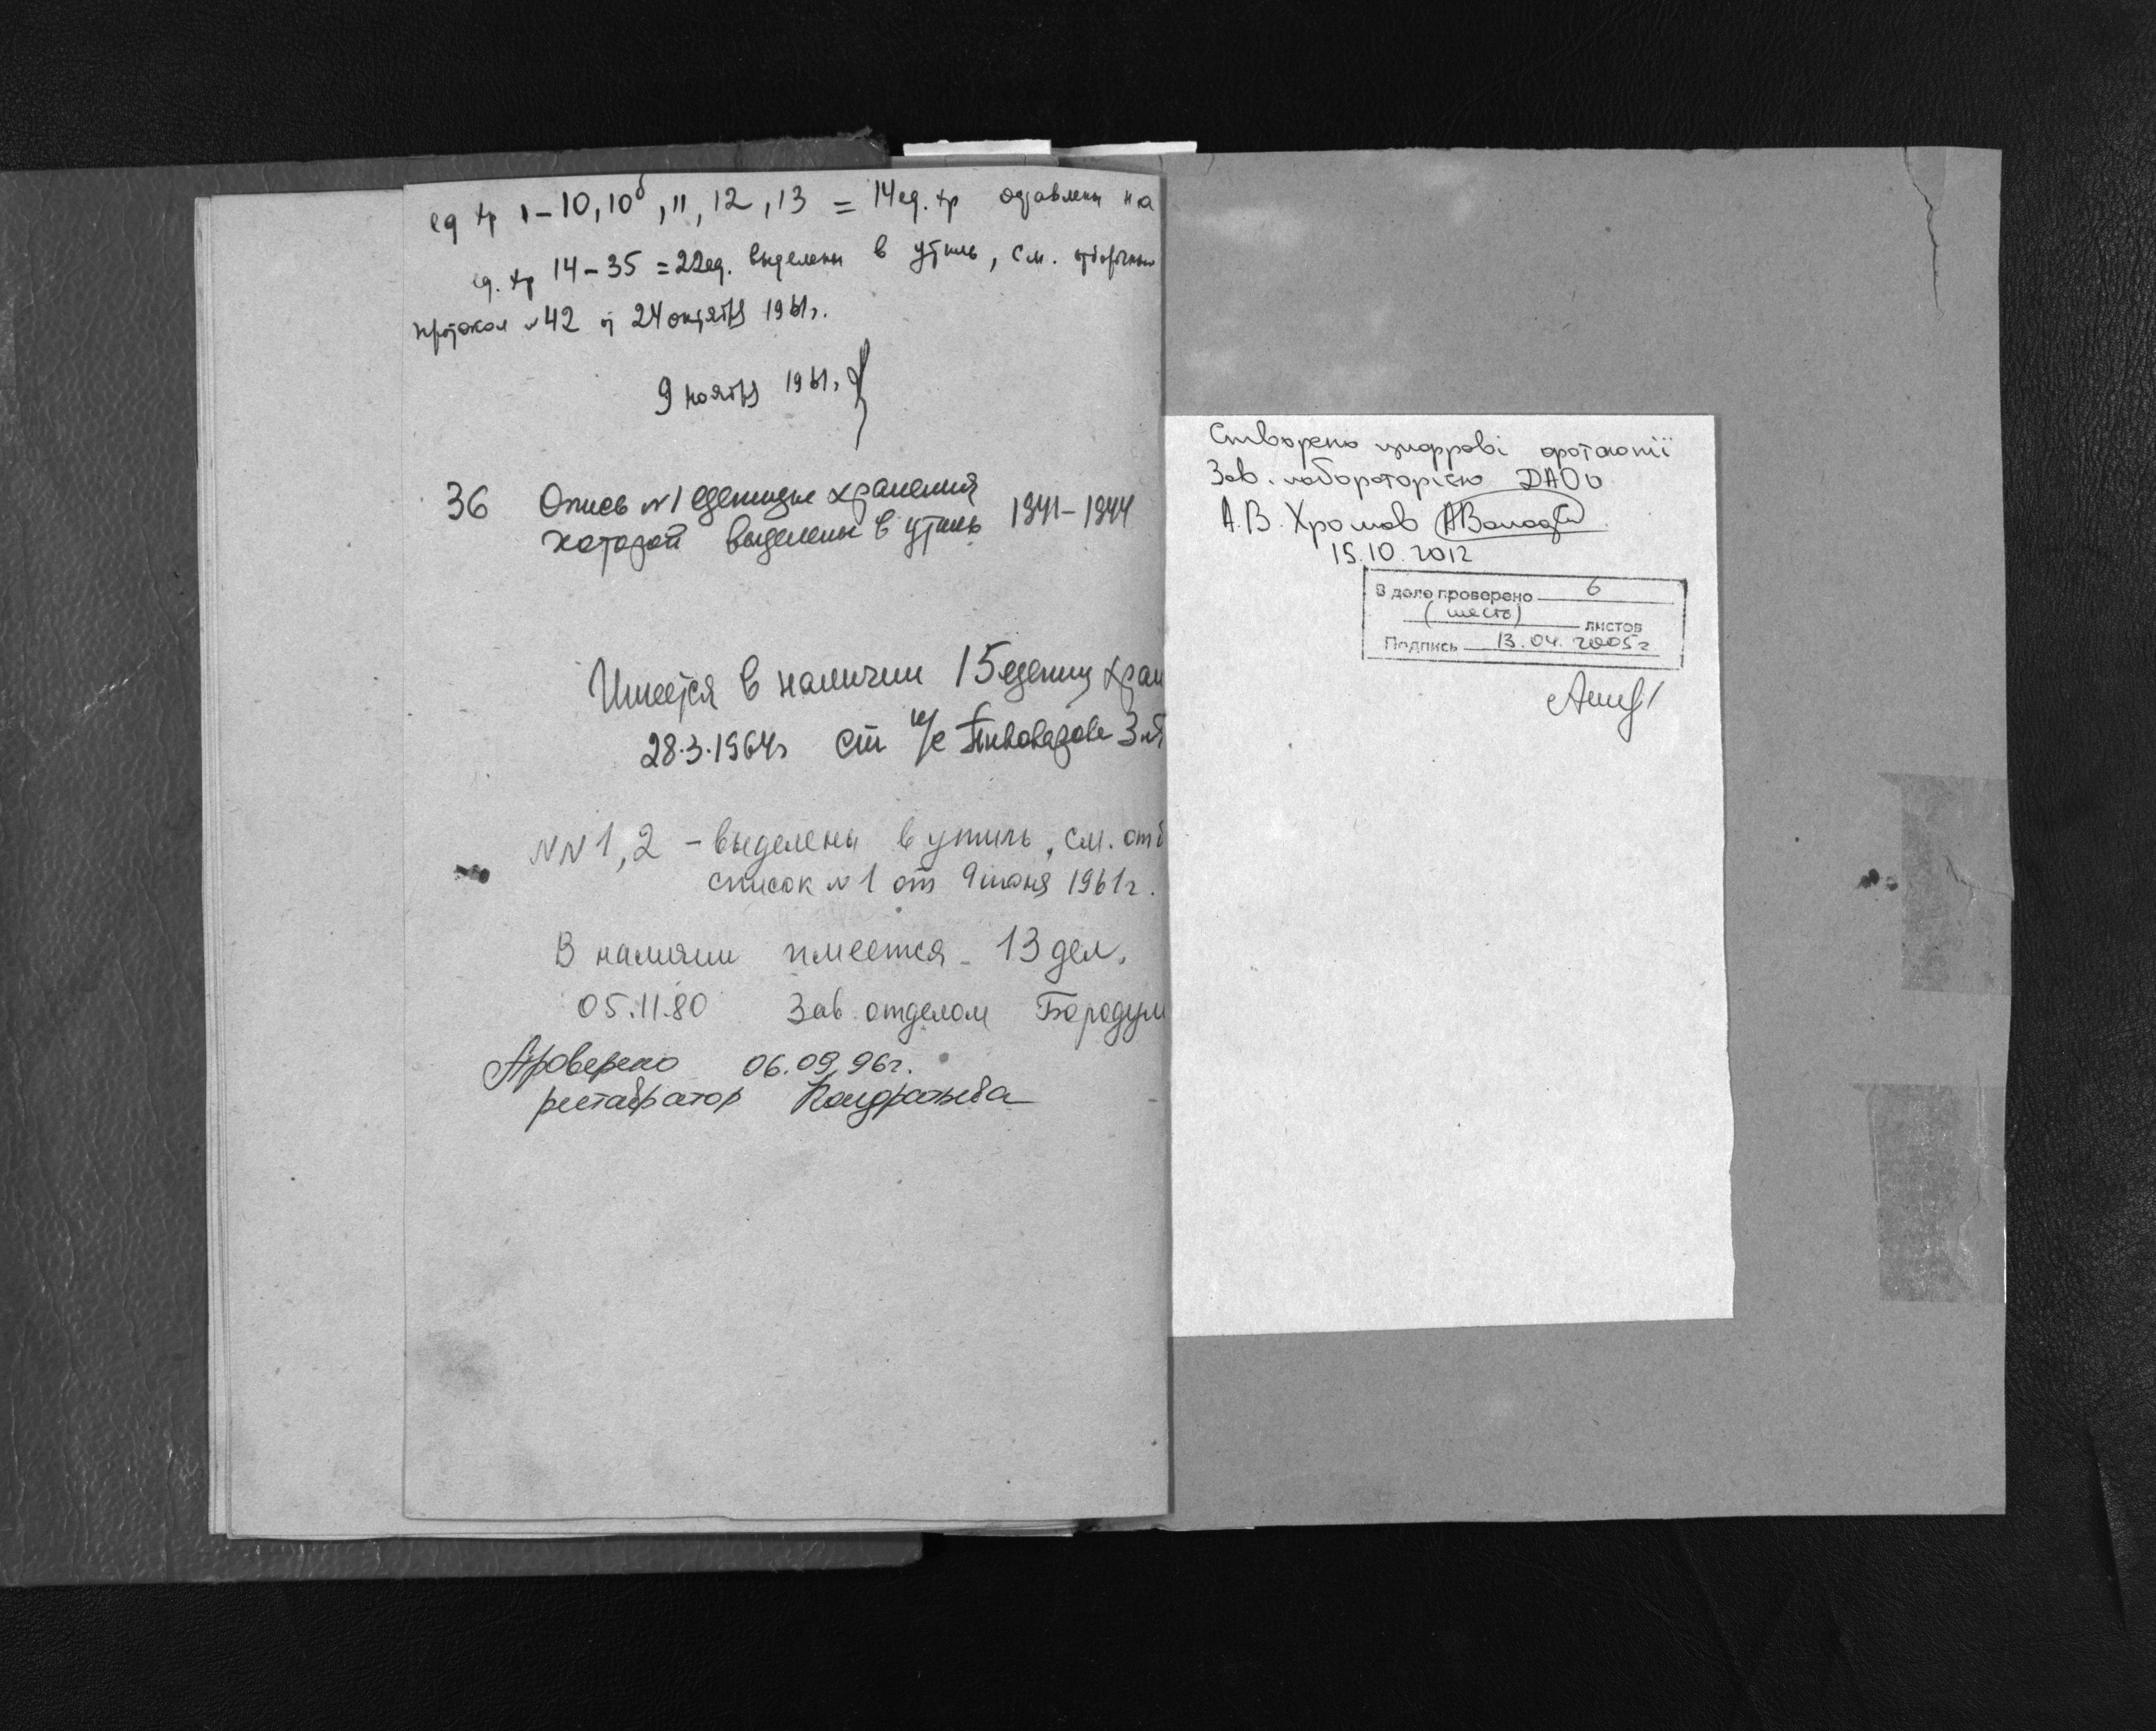 ед хр 1-10, 10б, 11, 12, 13 = 14 ед. хр оставлены на
ед. хр 14-35 = 22 ед. выделены в утиль, см. отборочный
протокол №42 от 24 октября 1961г.
9 ноября 1961г.
36 Опись №1 единицы хранения
которой выделены в утиль 1941-1944
Имеется в наличии 15 единиц хран
28.3.1964г ст н/с Пивоварова
NN 1, 2 - выделены в утиль, см. отб
список №1 от 9 июня 1961г.
В наличии имеется - 13 дел.
05.11.80 Зав. отделом Бородул
Проверено 06.09.96г.
реставратор Кондратьева
Створено цифрові фотокопії
Зав. лабораторією ДАОо
А.В. Хромов
15.10.2012
В деле проверено 6
(шесть) листов
Подпись 13.04.2005г